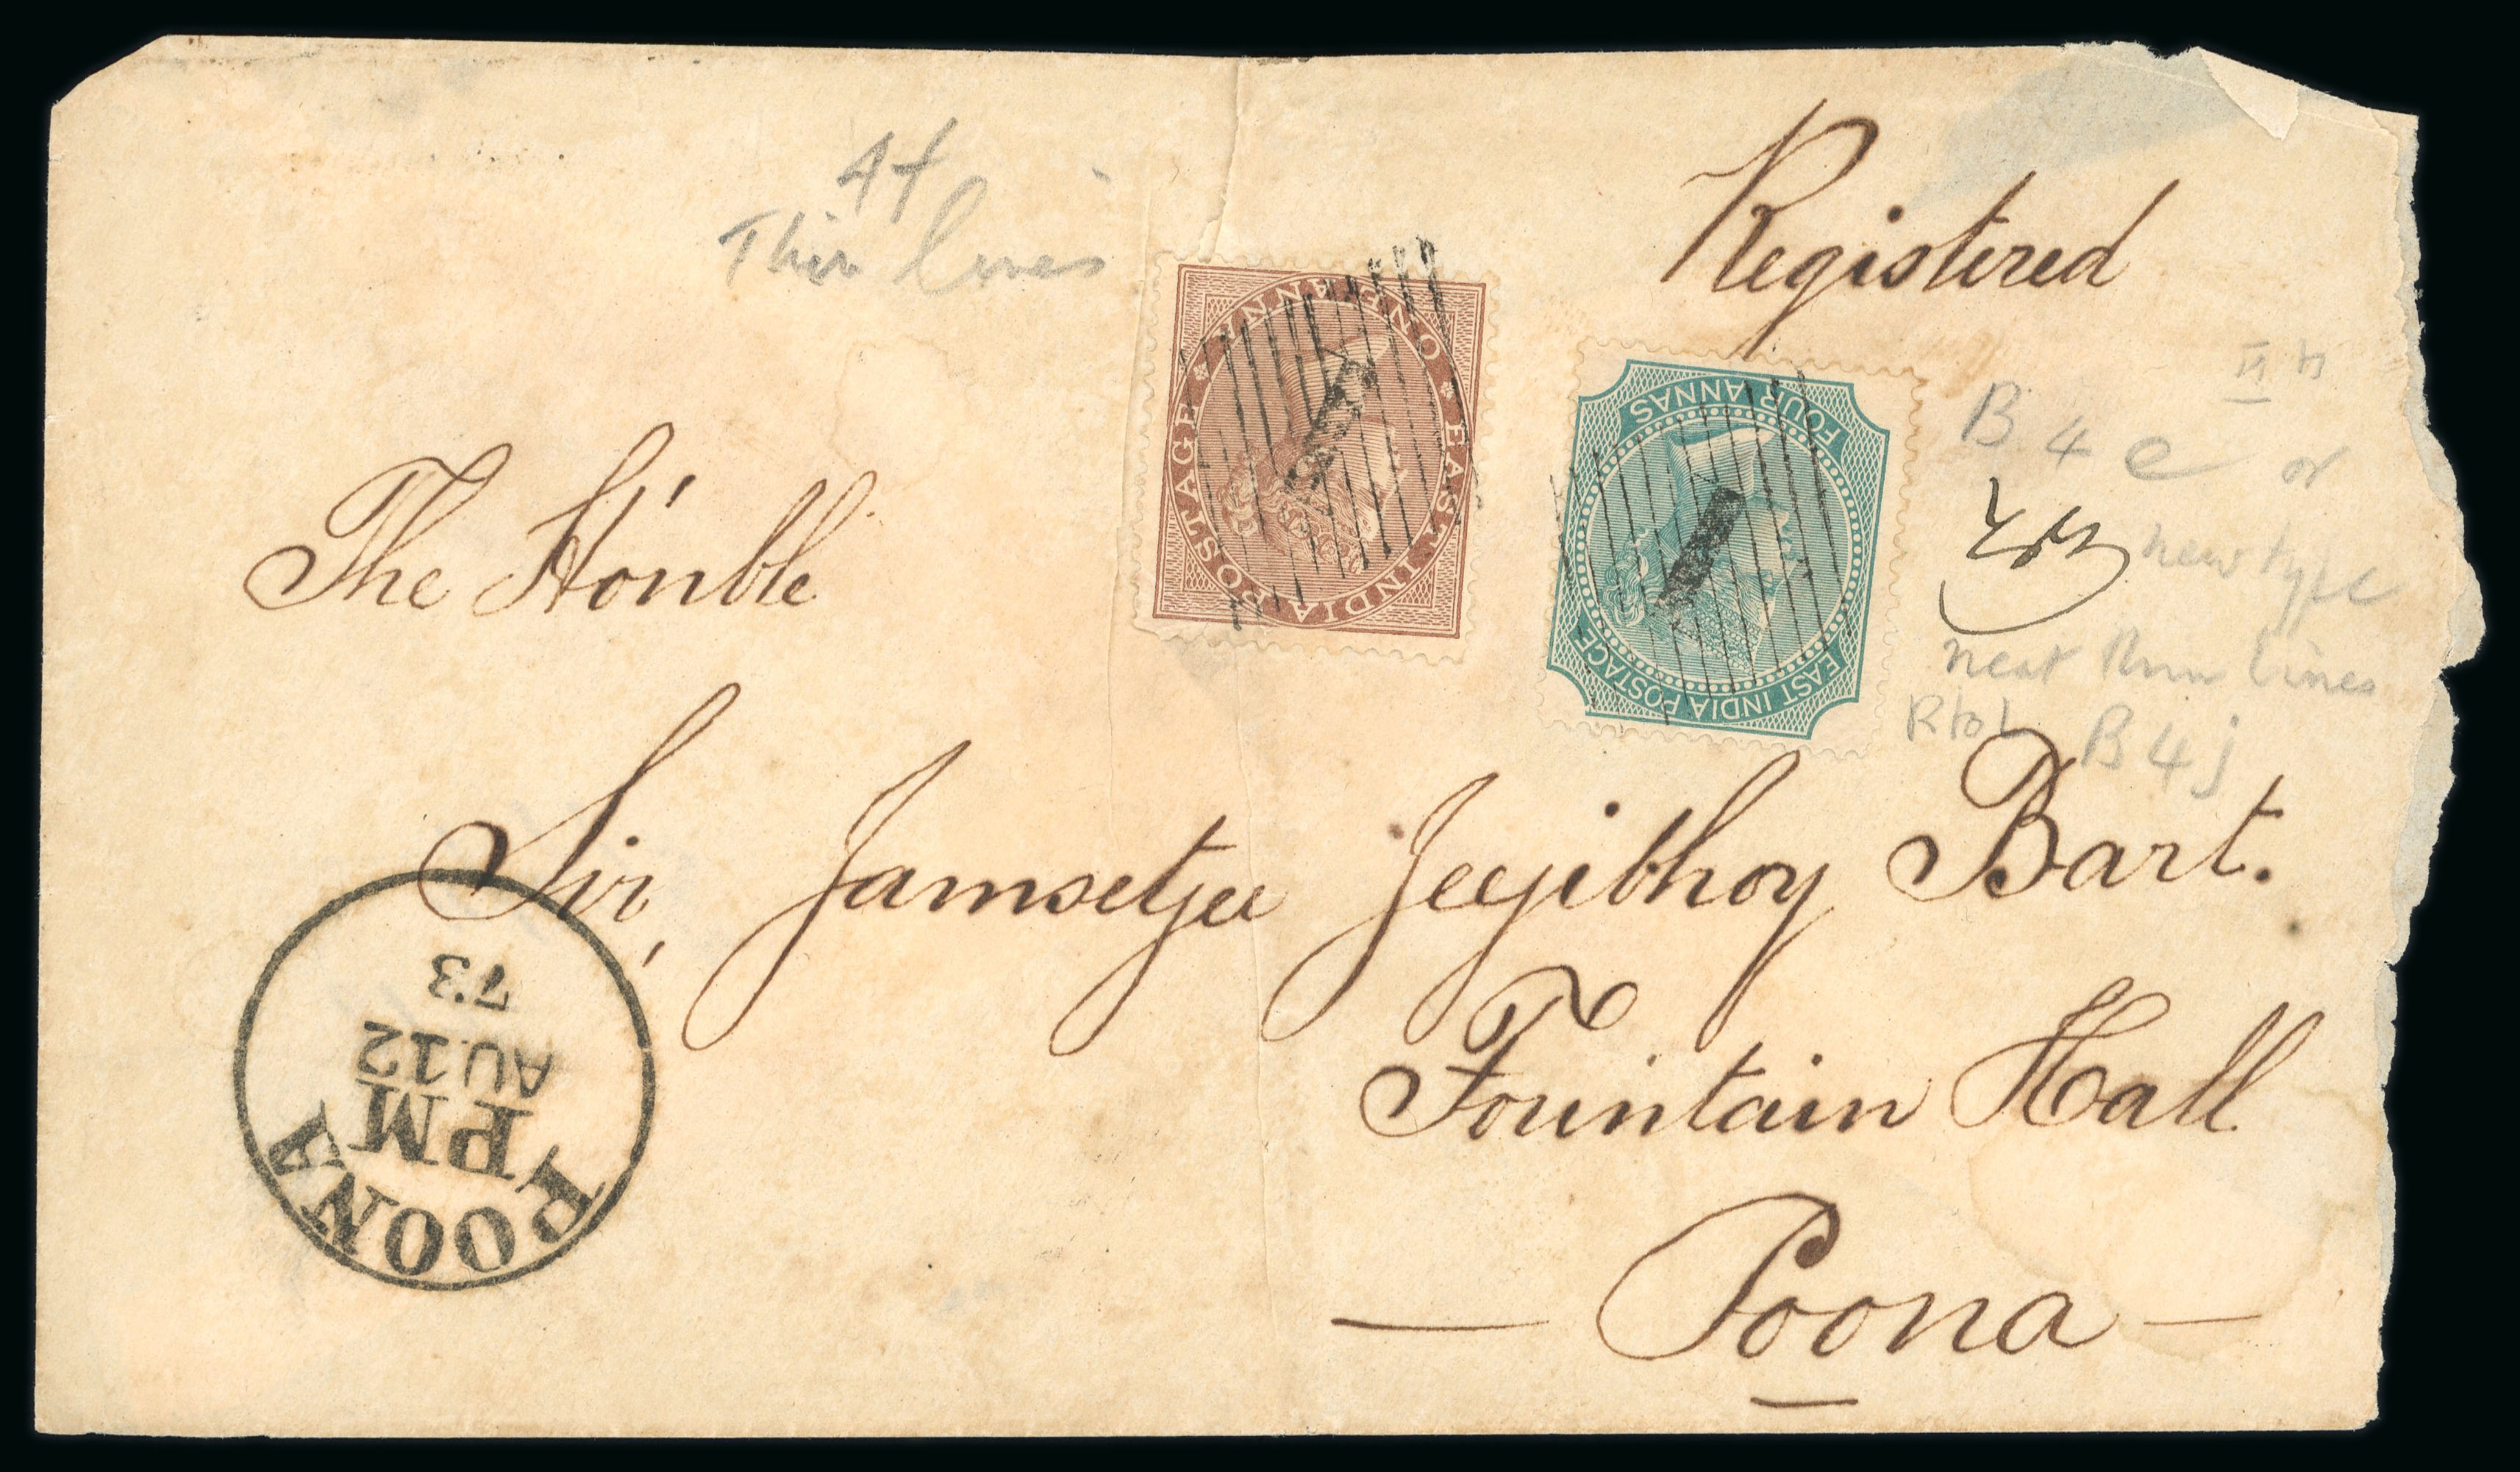 Registered
4f
Thin lines
ONE ANNA * EAST INDIA POSTAGE *
1
FOUR ANNAS
EAST INDIA POSTAGE
1
B 4 e or
new type
neat thin lines
R to L B 4 j
The Hon'ble
Sir, Jamsetjee Jeejibhoy Bart.
Fountain Hall
— Poona —
POONA
1 PM
AU.12
73